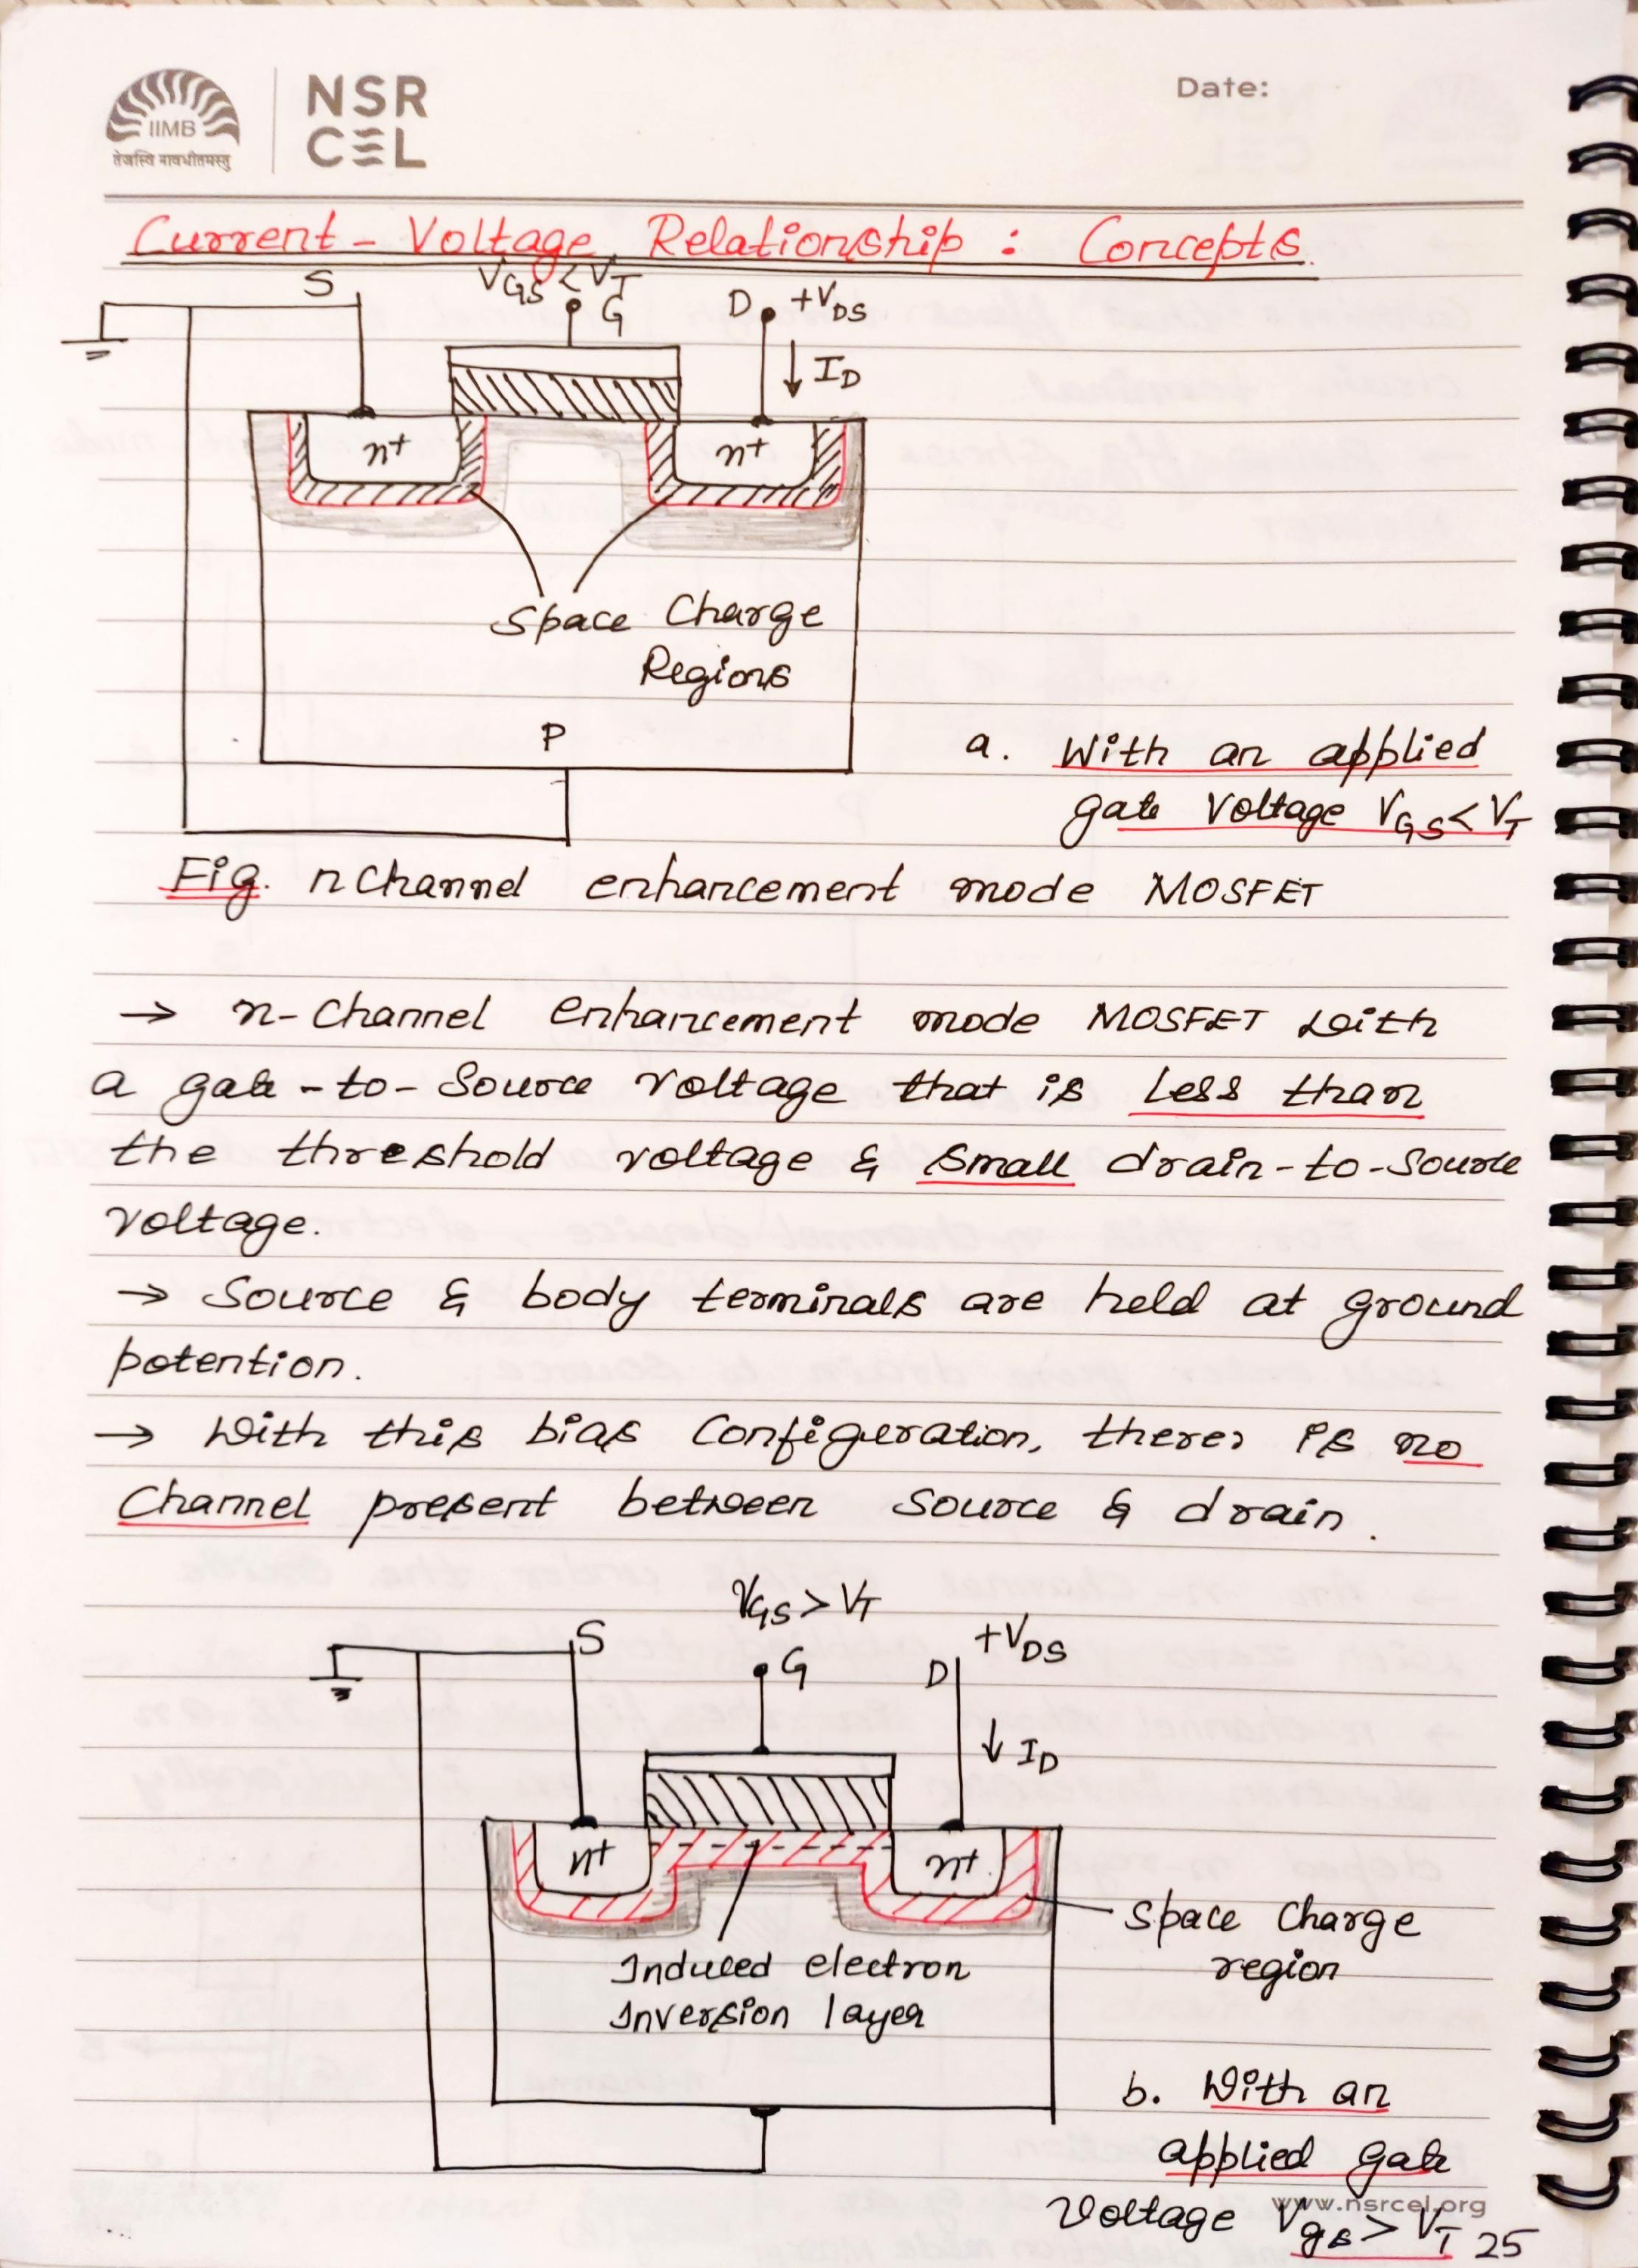 IIMB
तेजस्वि नावधीतमस्तु
NSR
CEL
Date:
Current - Voltage Relationship : Concepts.
S
VGS < VT
G
D
+VDS
ID
n+
n+
Space Charge
Regions
P
a. With an applied
gate Voltage VGS < VT
Fig. n Channel enhancement mode MOSFET
→ n-Channel Enhancement mode MOSFET with
a gate-to-Source voltage that is less than
the threshold voltage & small drain-to-Source
voltage.
→ Source & body terminals are held at ground
potention.
→ With this bias Configuration, there, is no
Channel present between Source & drain.
VGS > VT
S
G
D
+VDS
ID
n+
n+
Space Charge
region
Induced electron
Inversion layer
b. With an
applied gate
Voltage Vgs > VT
www.nsrcel.org
25